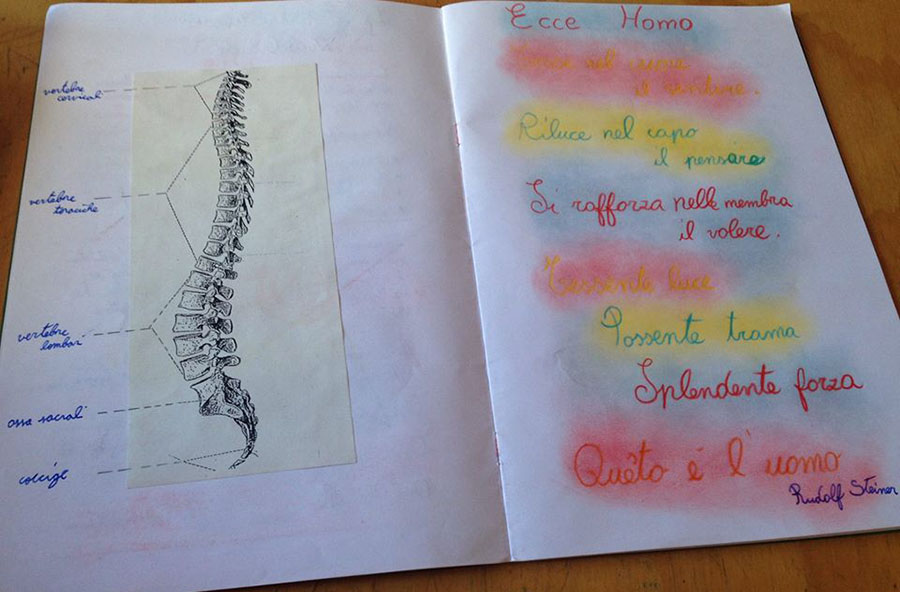 vertebre
cervicali
vertebre
toraciche
vertebre
lombari
ossa sacrali
coccige
Ecce Homo
nel cuore
il sentire.
Riluce nel capo
il pensare
Si rafforza nelle membra
il volere.
Tessente luce
Possente trama
Splendente forza
Quêto é l'uomo
Rudolf Steiner